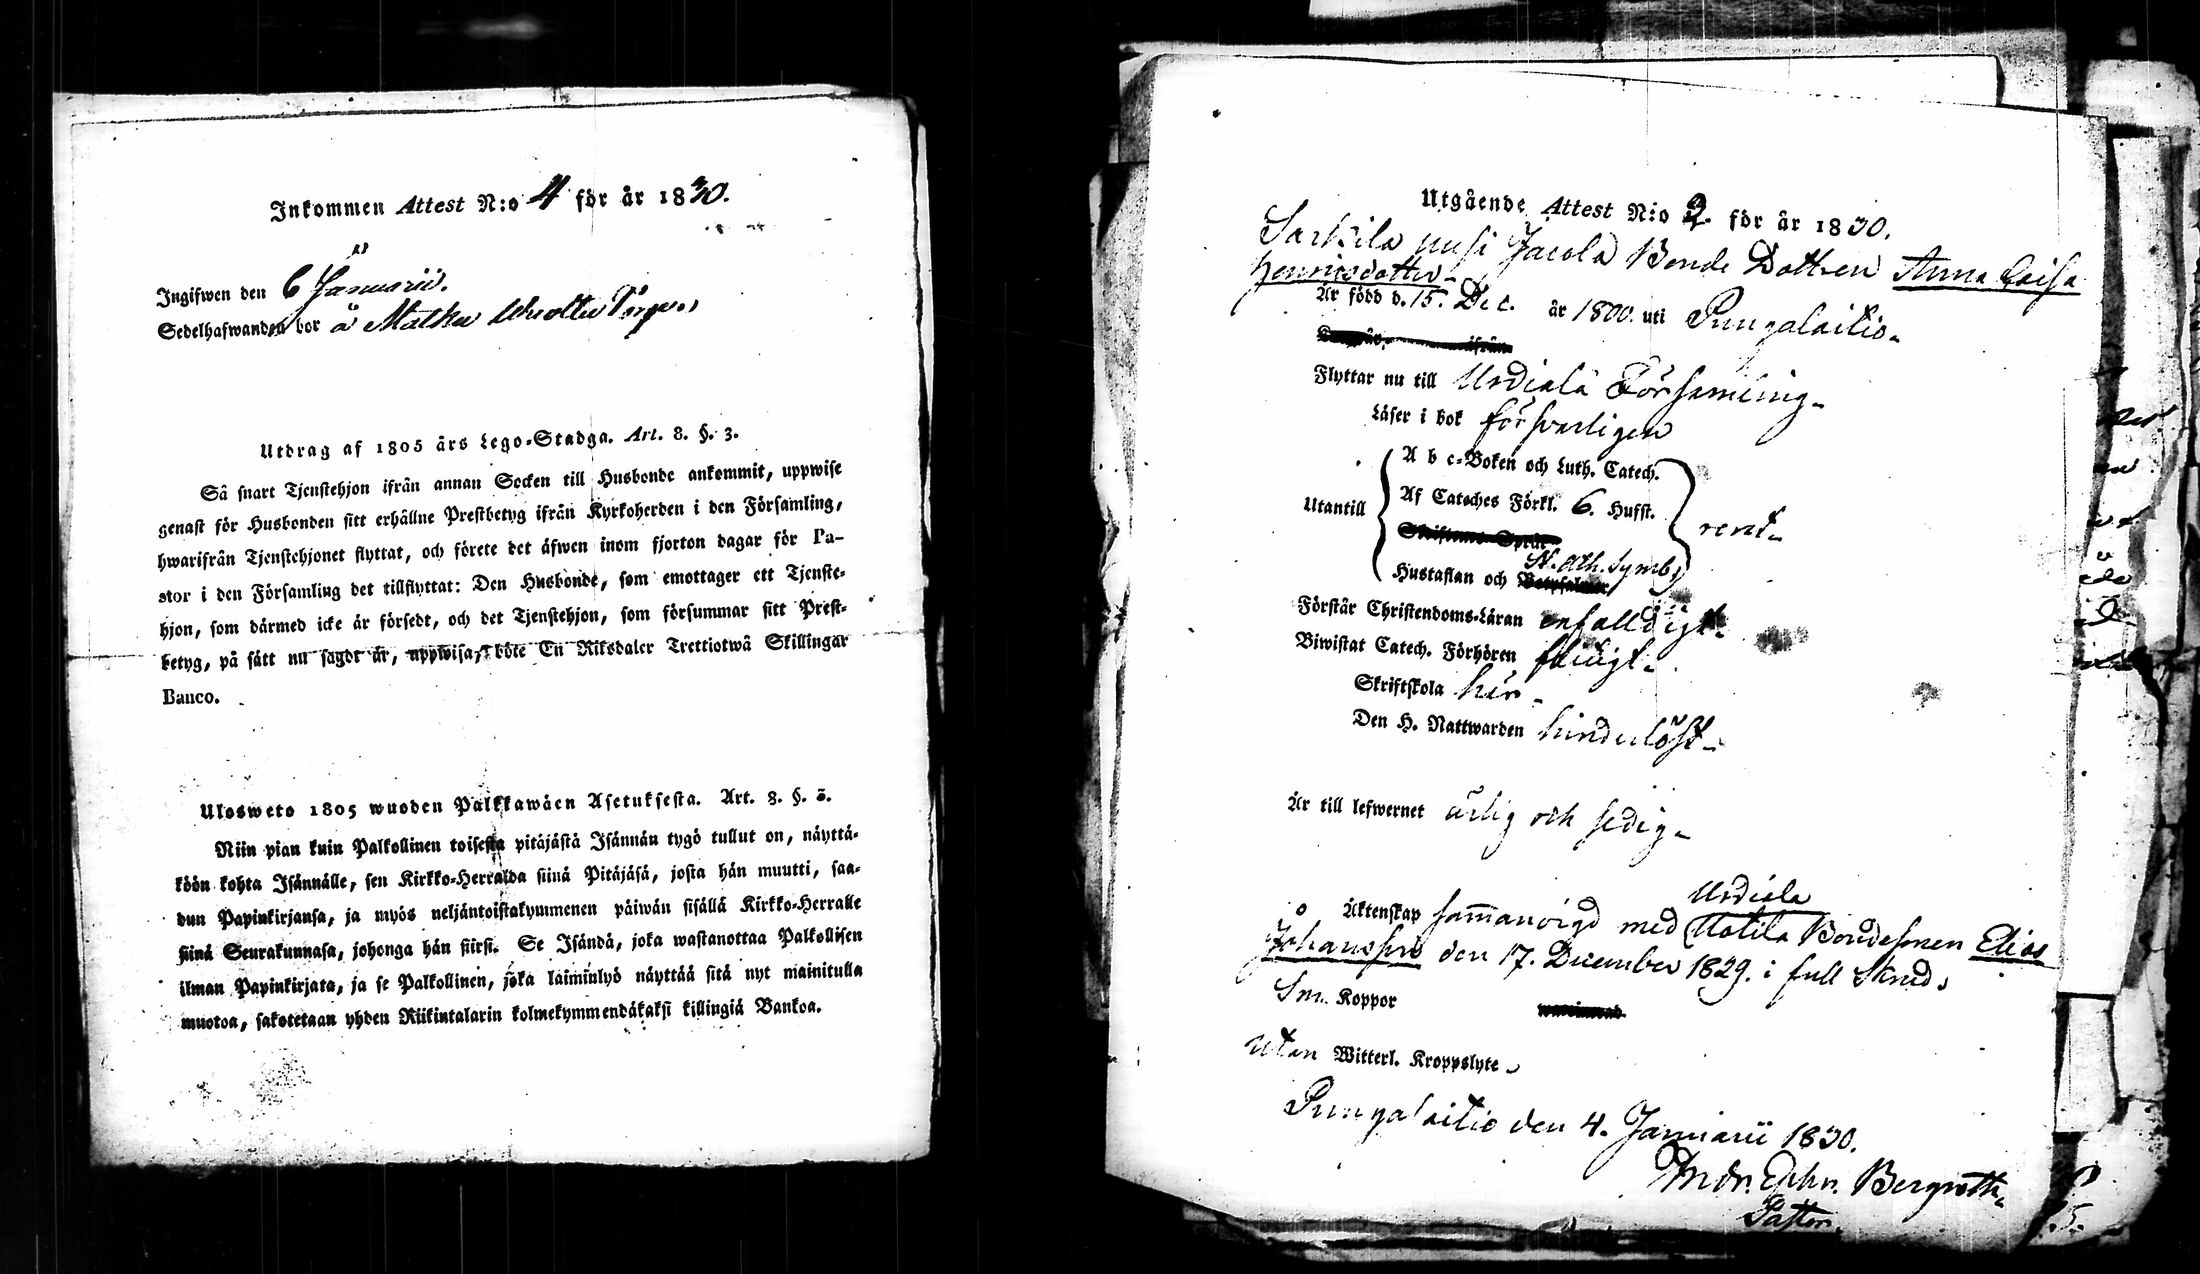 Inkommen Attest N:o 4 för år 1830.
Ingifwen den 6 Januarii.
Sedelhafwanden bor å Matku Torp.
Utdrag af 1805 års Lego-Stadga. Art. 8. §. 3.
Så snart Tjenstehjon ifrån annan Socken till Husbonde ankommit, uppwise
genast för Husbonden sitt erhållne Prestbetyg ifrån Kyrkoherden i den Församling,
hwarifrån Tjenstehjonet flyttat, och förete det äfwen inom fjorton dagar för Pa-
stor i den Församling det tillflyttat: Den Husbonde, som emottager ett Tjenste-
hjon, som därmed icke är försedt, och det Tjenstehjon, som försummar sitt Prest-
betyg, på sätt nu sagdt är, uppwisa, böte En Riksdaler Trettiotwå Skillingar
Banco.
Ulosweto 1805 wuoden Palkkawäen Asetuksesta. Art. 8. §. 3.
Niin pian kuin Palkollinen toisesta pitäjästä Isännän tygö tullut on, näyttä-
köön kohta Isännälle, sen Kirkko-Herralda siinä Pitäjäsä, josta hän muutti, saa-
dun Papinkirjansa, ja myös neljäntoistakymmenen päiwän sisällä Kirkko-Herralle
siinä Seurakunnasa, johonga hän siirsi. Se Isändä, joka wastanottaa Palkollisen
ilman Papinkirjata, ja se Palkollinen, joka laiminlyö näyttää sitä nyt mainitulla
muotoa, sakotetaan yhden Riikintalarin kolmekymmendäkaksi killingiä Bankoa.
Utgående Attest N:o 2. för år 1830.
Sarkila uusi Jacola Bonde Dottren Anna Caisa
Henricsdotter
Är född d. 15. Dec. år 1800. uti Pungalaitio
Flyttar nu till Urdiala Församling
Läser i bok försvarligen
A b c-Boken och Luth. Catech.
Utantill Af Cateches Förkl. 6. Hufst. rent
St. Ath. Symb.
Hustaflan och
Förstår Christendoms-Läran enfalldigt
Biwistat Catech. Förhören flitigt
Skriftskola här
Den H. Nattwarden hinderlöst
Är till lefwernet ärlig och sedig
Urdiala
Äktenskap sammanvigd med Notila Bondesonen Elias
Johansson den 17. December 1829. i full Skrud.
Koppor
utan Witterl. Kroppslyte
Pungalaitio den 4. Januarii 1830.
Andr. Ephr. Bergroth
Pastor.